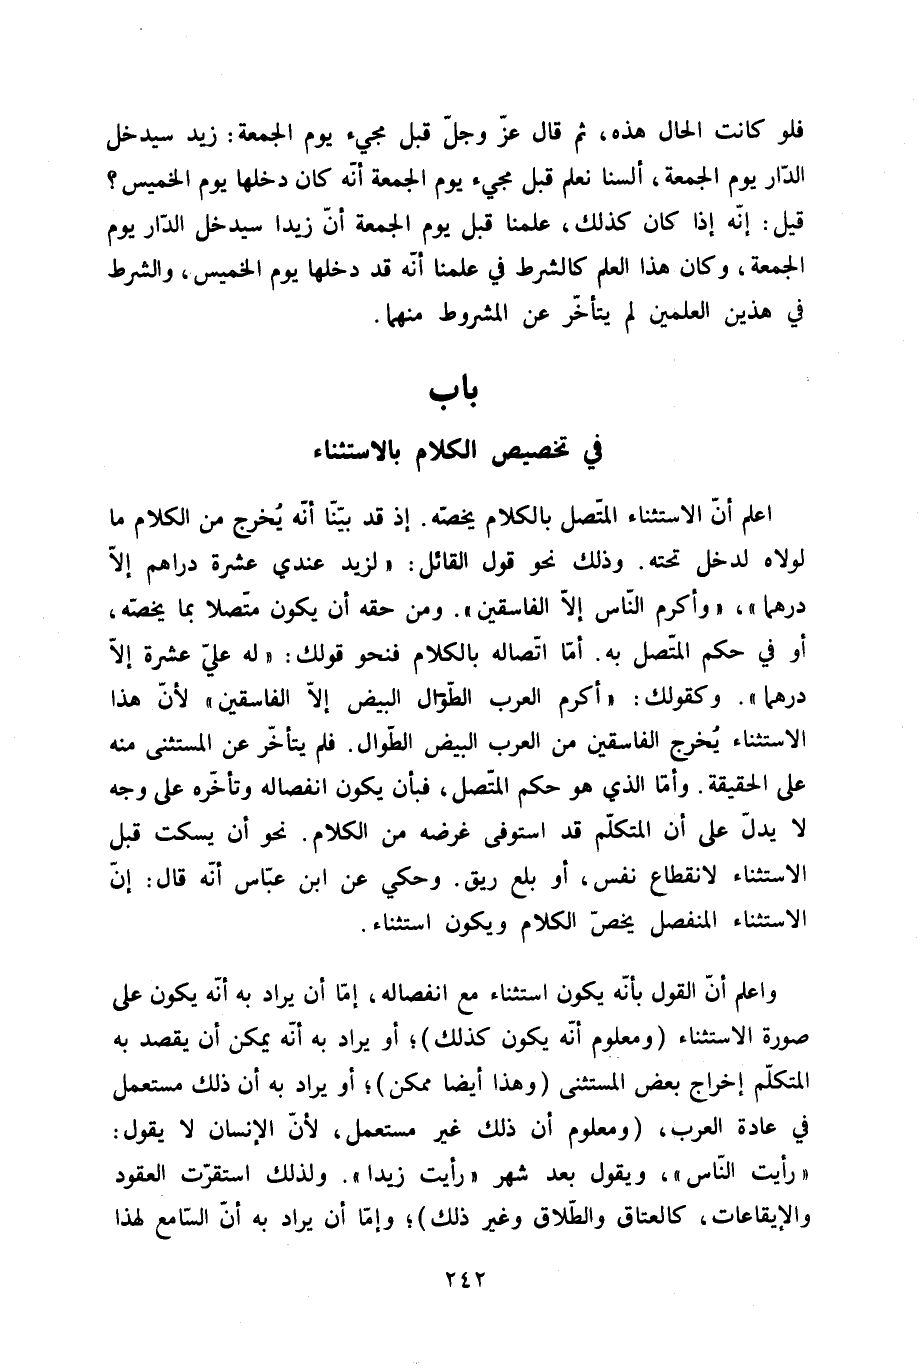 فلو كانت الحال هذه، ثم قال عزّ وجلّ قبل مجيء يوم الجمعة: زيد سيدخل
الدّار يوم الجمعة، ألسنا نعلم قبل مجيء يوم الجمعة أنّه كان دخلها يوم الخميس؟
قيل: إنّه إذا كان كذلك، علمنا قبل يوم الجمعة أنّ زيدا سيدخل الدّار يوم
الجمعة، وكان هذا العلم كالشرط في علمنا أنّه قد دخلها يوم الخميس، والشرط
في هذين العلمين لم يتأخّر عن المشروط منهما.
باب
في تخصيص الكلام بالاستثناء
اعلم أنّ الاستثناء المتّصل بالكلام يخصّه. إذ قد بيّنّا أنّه يُخرج من الكلام ما
لولاه لدخل تحته. وذلك نحو قول القائل: «لزيد عندي عشرة دراهم إلاّ
درهما»، «وأكرم النّاس إلاّ الفاسقين». ومن حقه أن يكون متّصلا بما يخصّه،
أو في حكم المتّصل به. أمّا اتّصاله بالكلام فنحو قولك: «له عليّ عشرة إلاّ
درهما». وكقولك: «أكرم العرب الطّوال البيض إلاّ الفاسقين» لأنّ هذا
الاستثناء يُخرج الفاسقين من العرب البيض الطّوال. فلم يتأخّر عن المستثنى منه
على الحقيقة. وأمّا الذي هو حكم المتّصل، فبأن يكون انفصاله وتأخّره على وجه
لا يدلّ على أن المتكلّم قد استوفى غرضه من الكلام. نحو أن يسكت قبل
الاستثناء لانقطاع نفس، أو بلع ريق. وحكي عن ابن عبّاس أنّه قال: إنّ
الاستثناء المنفصل يخصّ الكلام ويكون استثناء.
واعلم أنّ القول بأنّه يكون استثناء مع انفصاله، إمّا أن يراد به أنّه يكون على
صورة الاستثناء (ومعلوم أنّه يكون كذلك)؛ أو يراد به أنّه يمكن أن يقصد به
المتكلّم إخراج بعض المستثنى (وهذا أيضا ممكن)؛ أو يراد به أن ذلك مستعمل
في عادة العرب، (ومعلوم أن ذلك غير مستعمل، لأنّ الإنسان لا يقول:
«رأيت النّاس»، ويقول بعد شهر «رأيت زيدا». ولذلك استقرّت العقود
والإيقاعات، كالعتاق والطّلاق وغير ذلك)؛ وإمّا أن يراد به أنّ السّامع لهذا
٢٤٢